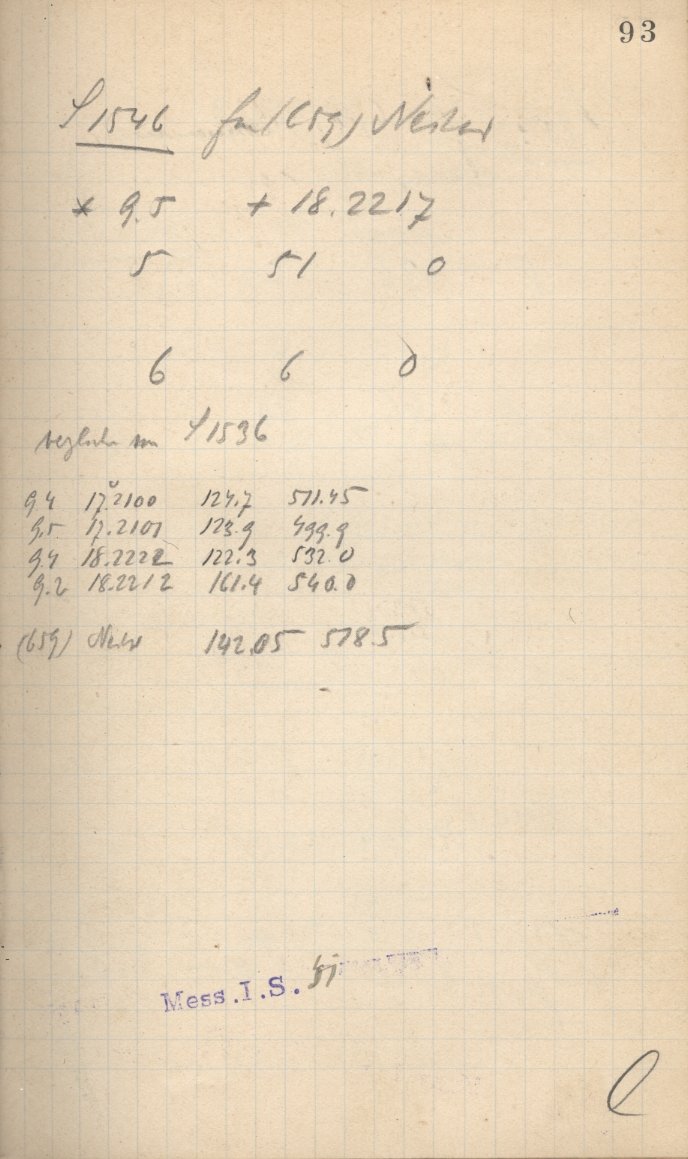 93
S 1546 (659) Nestor
* 9.5 + 18.2217
5 51 0
6 6 0
S 1536
9.4 17.2100 124.7 511.45
9.5 17.2101 123.9 499.9
9.4 18.2222 122.3 532.0
9.2 18.2212 161.4 540.0
(659) Nestor 142.05 518.5
Mess.I.S.